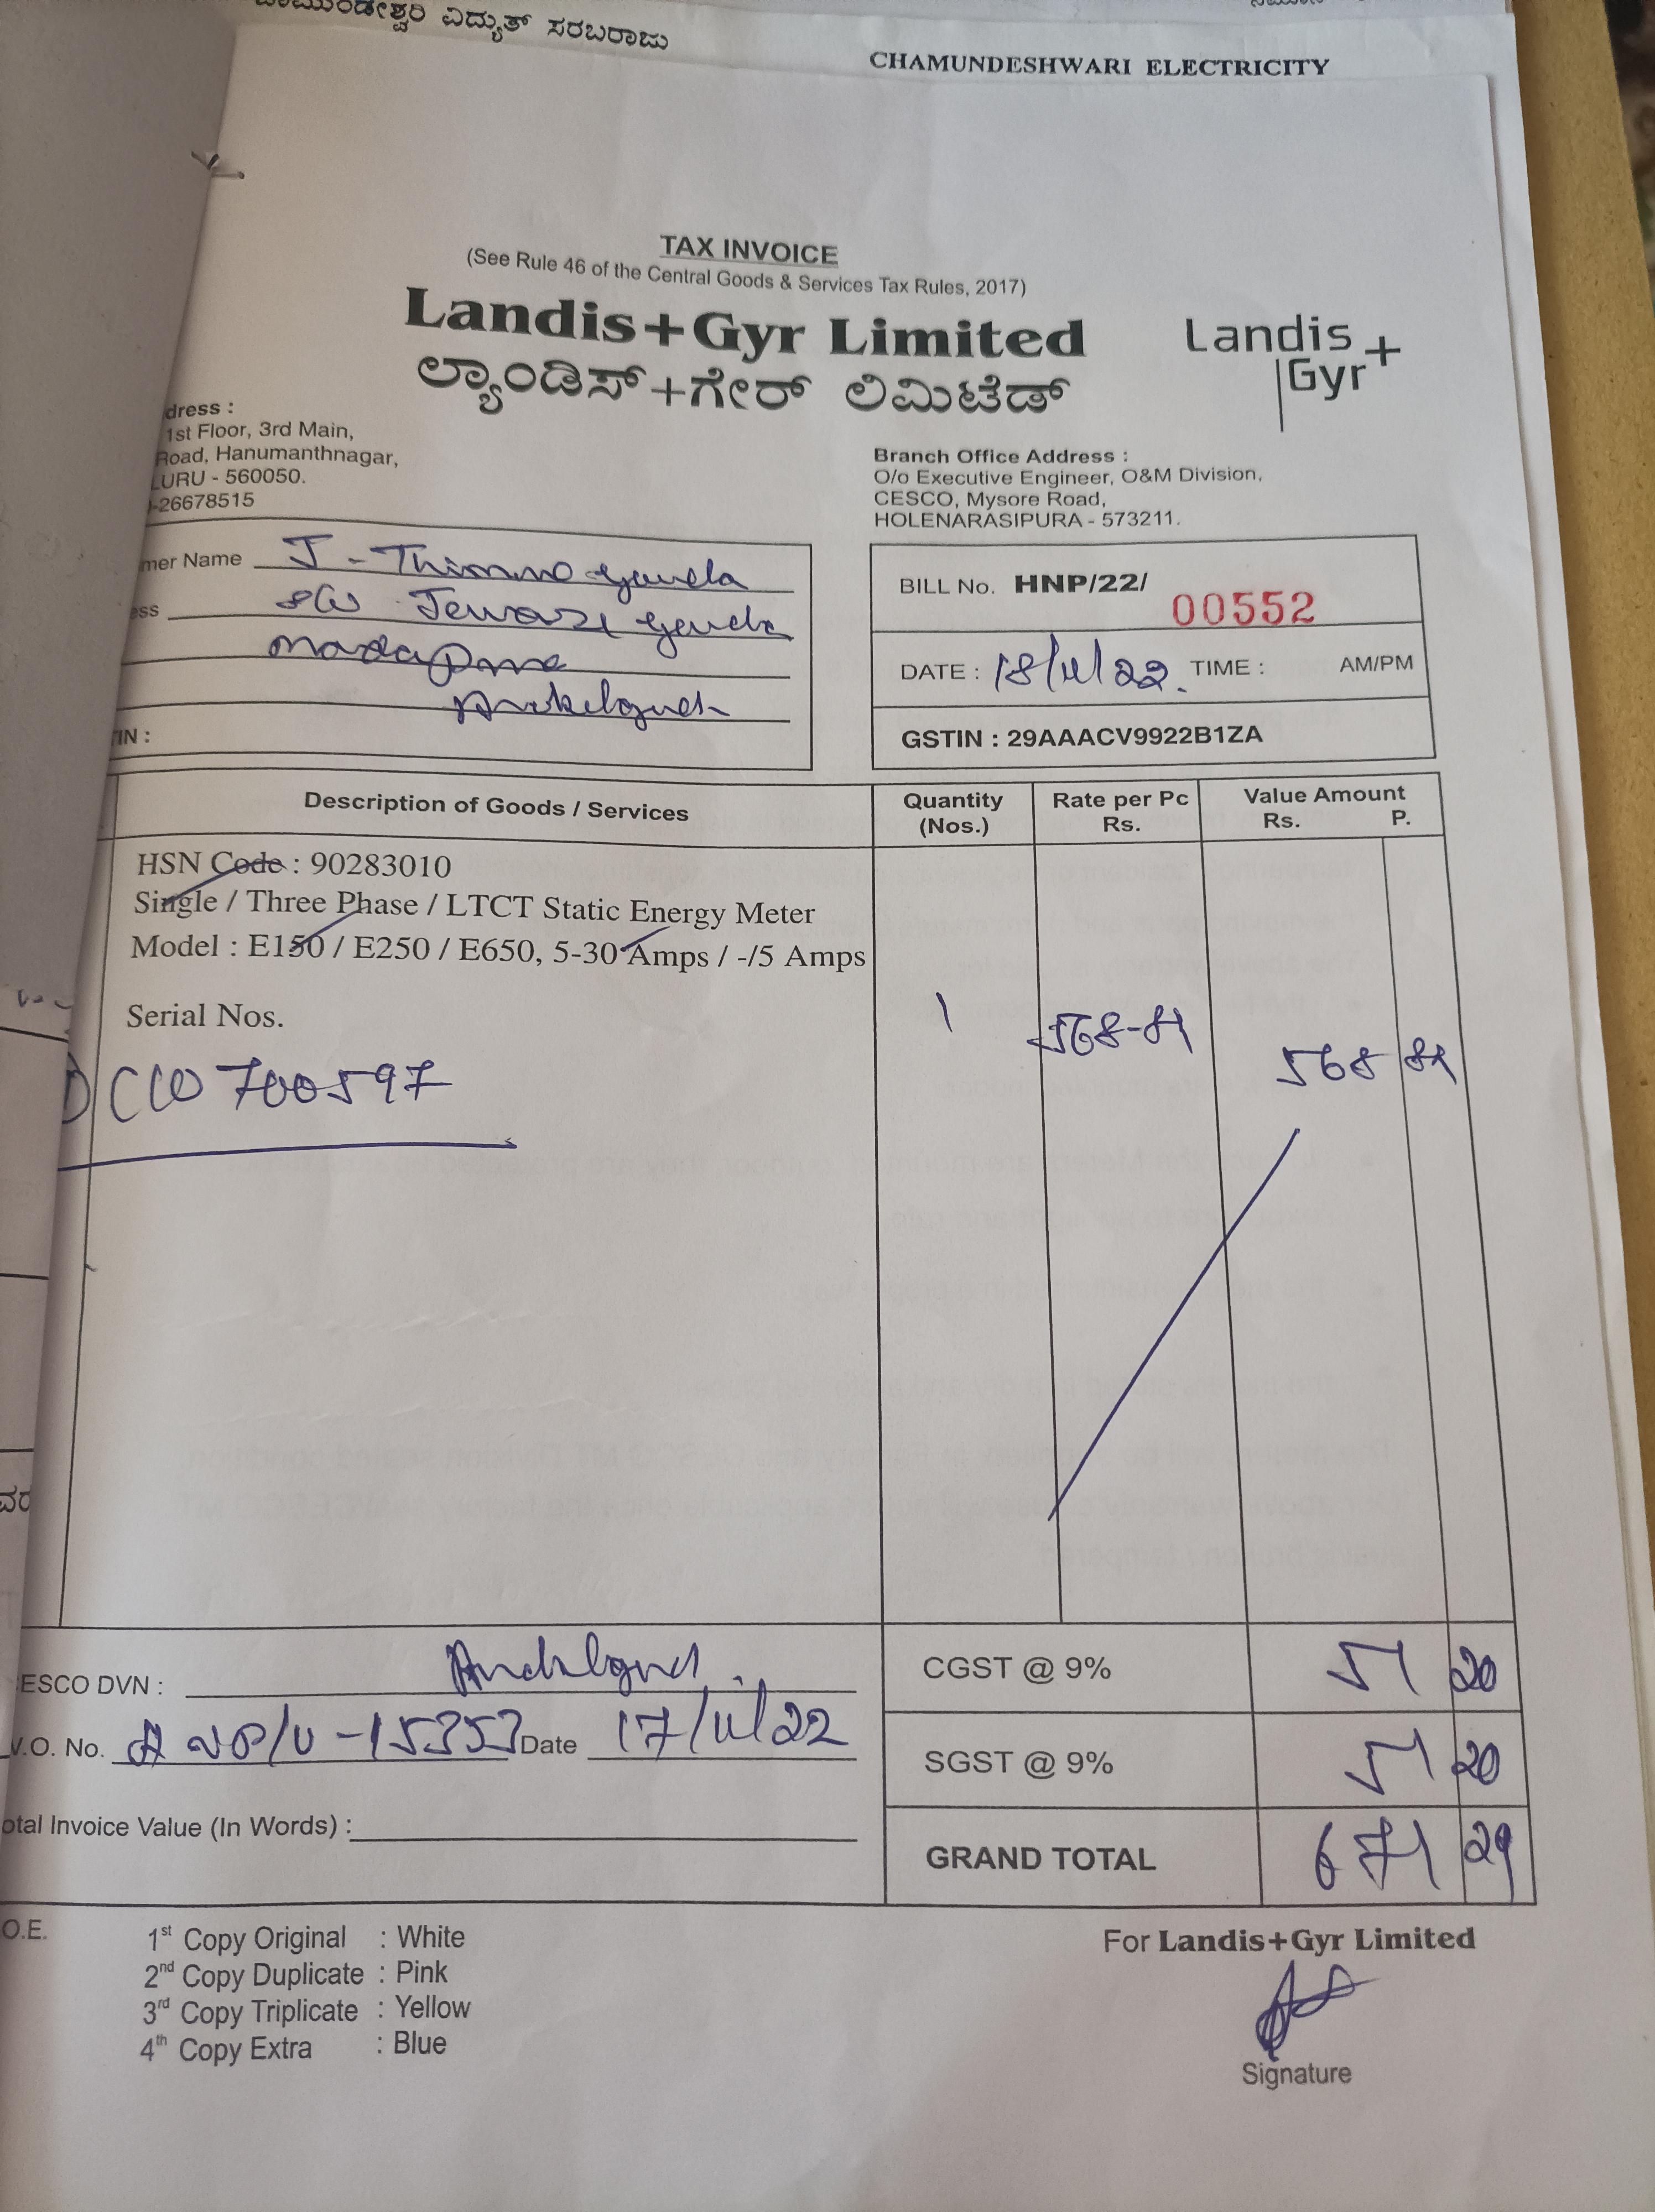 ವಿದ್ಯುತ್ ಸರಬರಾಜು
CHAMUNDESHWARI ELECTRICITY
TAX INVOICE
(See Rule 46 of the Central Goods & Services Tax Rules, 2017)
Landis+Gyr Limited
ಲ್ಯಾಂಡಿಸ್+ಗೇರ್ ಲಿಮಿಟೆಡ್
Landis+Gyr
dress :
1st Floor, 3rd Main,
Road, Hanumanthnagar,
LURU - 560050.
-26678515
Branch Office Address :
O/o Executive Engineer, O&M Division,
CESCO, Mysore Road,
HOLENARASIPURA - 573211.
mer Name J - Thimme gowda
ess
TIN :
BILL No. HNP/22/ 00552
DATE : 18/11/22. TIME : AM/PM
GSTIN : 29AAACV9922B1ZA
Description of Goods / Services Quantity (Nos.) Rate per Pc Rs. Value Amount Rs. P.
HSN Code : 90283010
Single / Three Phase / LTCT Static Energy Meter
Model : E150 / E250 / E650, 5-30 Amps / -/5 Amps
Serial Nos.
1 568-89 568 89
700597
ESCO DVN :
V.O. No. Date 17/11/22
otal Invoice Value (In Words) :
CGST @ 9% 51 20
SGST @ 9% 51 20
GRAND TOTAL 671 29
O.E.
1st Copy Original : White
2nd Copy Duplicate : Pink
3rd Copy Triplicate : Yellow
4th Copy Extra : Blue
For Landis+Gyr Limited
Signature